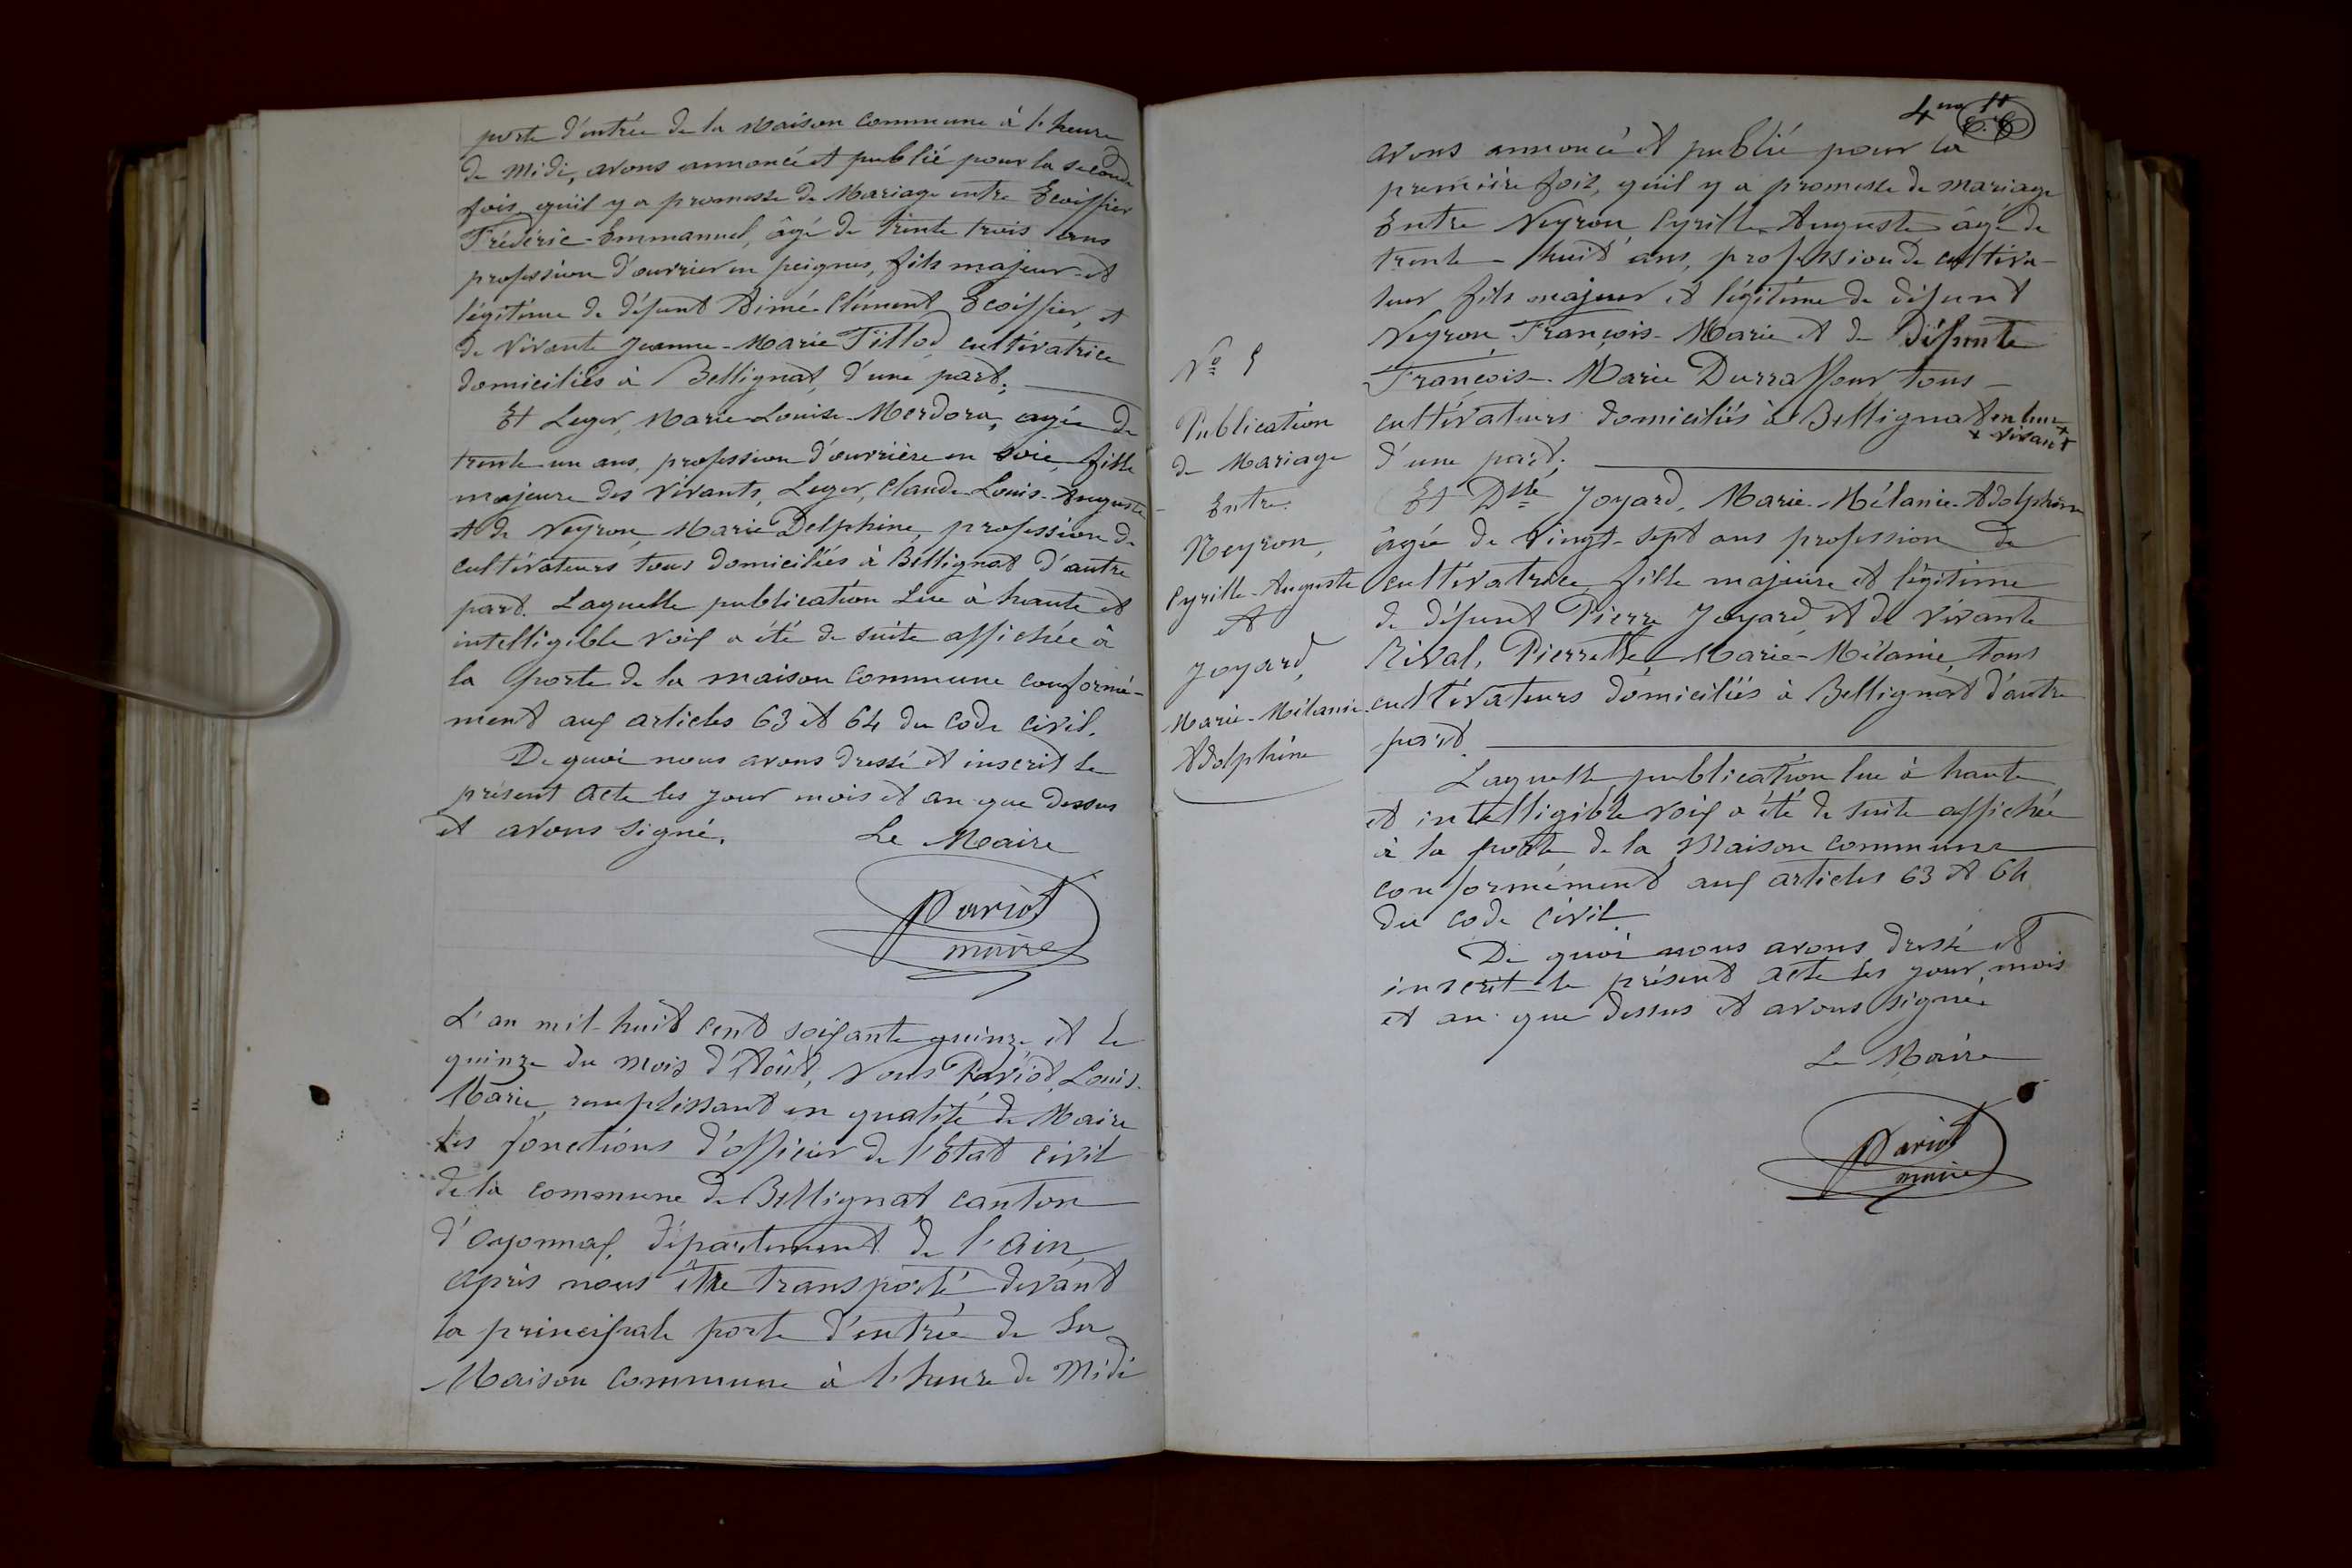 porte d'entrée de la Maison Commune à l'heure
de Midi, avons annoncé et publié pour la seconde
fois qu'il y a promesse de Mariage entre Ecoiffier
Frédéric-Emmanuel, âgé de trente trois ans
profession d'ouvrier en peignes, fils majeur et
légitime de défunt Aimé Clément Ecoiffier, et
de vivante Jeanne-Marie Tillod cultivatrice
domiciliés à Bellignat, d'une part;
Et Leger, Marie-Louise-Merdora, agée de
trente un ans, profession d'ouvrière en soie, fille
majeure des vivants, Leger, Claude-Louis-Auguste
et de Neyron, Marie Delphine, profession de
cultivateurs tous domiciliés à Bellignat d'autre
part. Laquelle publication Lue à haute et
intelligible voix a été de suite affichée à
la porte de la maison commune conformé-
ment aux articles 63 et 64 du code civil.
De quoi nous avons dressé et inscrit le
présent acte les jour mois et an que dessus
et avons signé. Le Maire
Pariot
maire
L'an mil-huit cent soixante quinze et le
quinze du mois d'Août, Nous Pariot, Louis-
Marie, remplissant en qualité de Maire
les fonctions d'officier de l'Etat civil
de la commune de Bellignat canton
d'Oyonnax, département de l'Ain
après nous être transporté devant
la principale porte d'entrée de la
Maison Commune à l'heure de Midi
4me
avons annoncé et publié pour la
première fois, qu'il y a promesse de mariage
Entre Neyron Cyrille-Auguste âgé de
trente-huit ans, profession de cultiva-
teur fils majeur et légitime de défunt
Neyron, François-Marie et de Défunte
François-Marie Durraffour tous
cultivateurs domiciliés à Bellignat en leur +
+ vivant
d'une part;
Et Dlle Joyard, Marie-Mélanie-Adolphine
âgée de vingt-sept ans profession de
cultivatrice, fille majeure et légitime
de défunt Pierre Joyard, et de vivante
Rival, Pierrette, Marie-Mélanie, tous
cultivateurs domiciliés à Bellignat d'autre
part.
Laquelle publication lue à haute
et intelligible voix a été de suite affichée
à la porte de la Maison commune
conformément aux articles 63 et 64
du code civil.
De quoi nous avons dressé et
inscrit le présent acte les jour, mois
et an que dessus et avons signé
Le Maire
Pariot
maire
No 5
Publication
de Mariage
Entre
Neyron,
Cyrille-Auguste
et
Joyard,
Marie-Mélanie
Adolphine